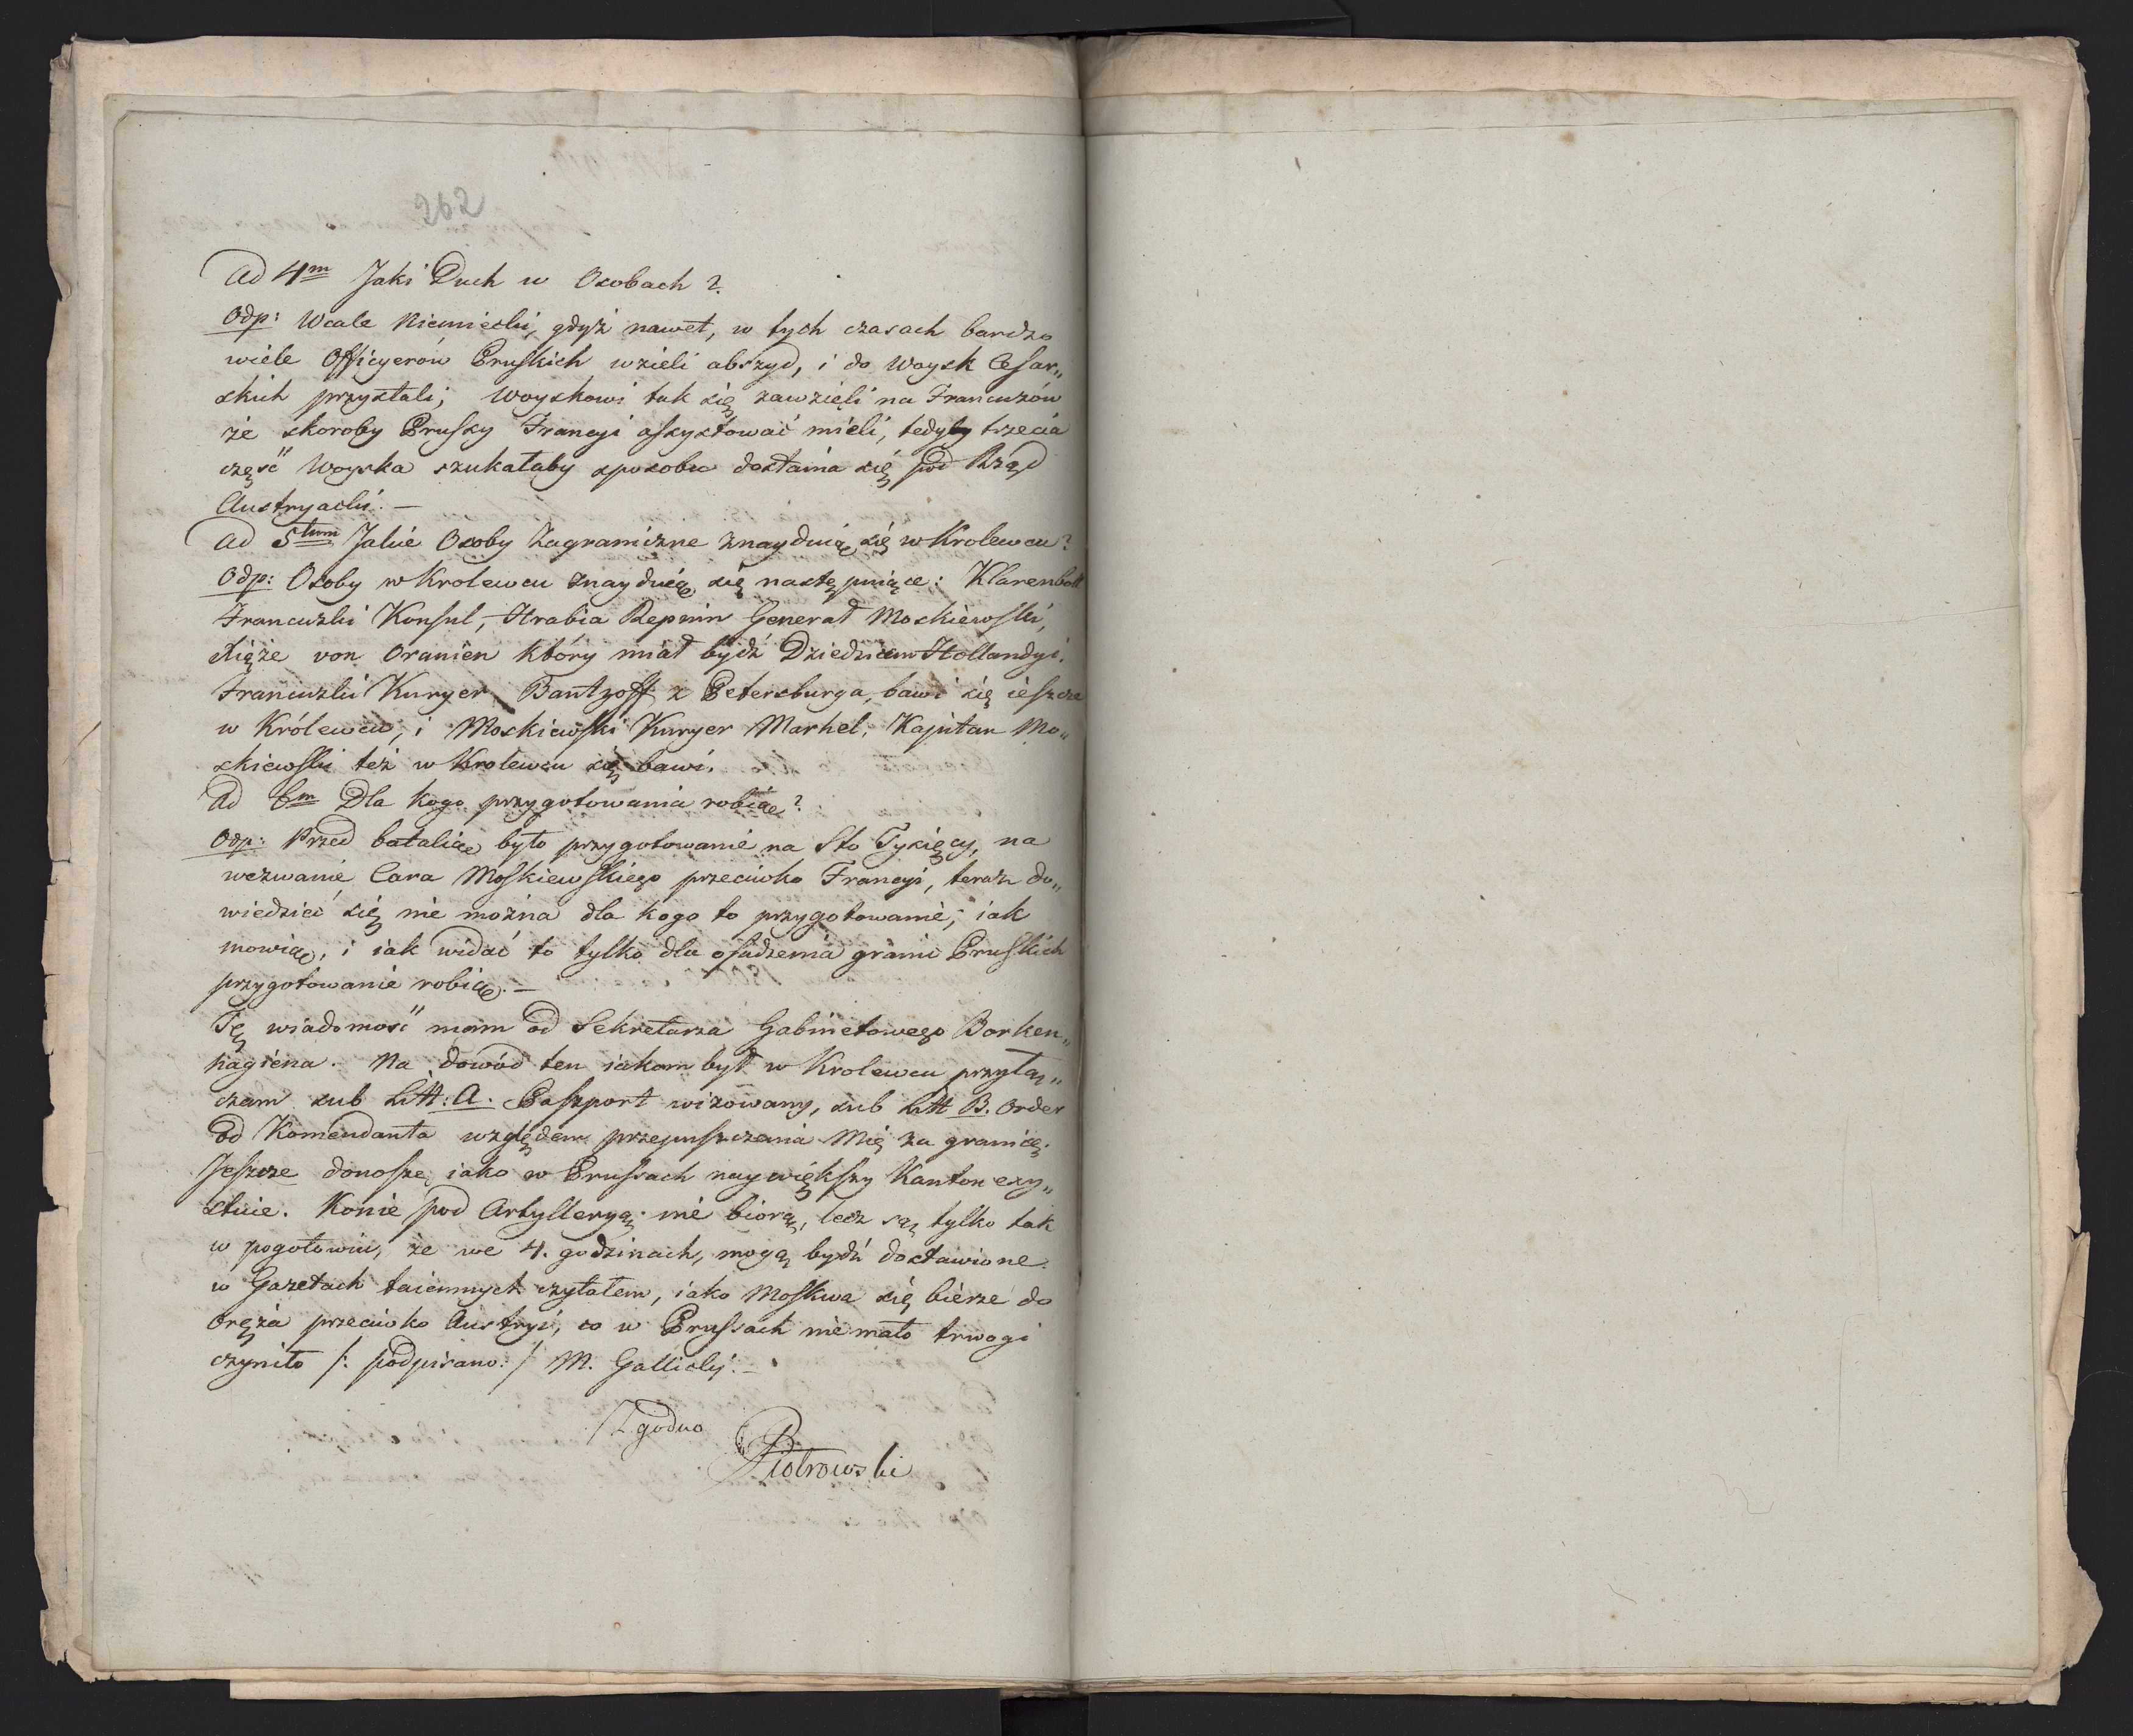 262
Ad 4m Jaki Duch w Osobach?
Odp: Wcale Niemiecki, gdyż nawet, w tych czasach bardzo
wiele Officyerów Pruskich wzieli abszyd, i do Woysk Cesar„
skich przystali; Woyskowi tak się zawzięli na Francuzów
że skoroby Prussy Francyi assystować mieli, tedyby trzecia
część Woyska szukałaby sposobu dostania się pod Rząd
Austryacki. —
Ad 5tum Jakie Osoby Zagraniczne znayduią się w Krolewcu?
Odp: Osoby w Krolewcu znayduią się następuiące: Klarenbolt
Francuzki Konsul, Hrabia Repnin Generał Moskiewski,
Xiąże von Oranien który miał bydź Dziedzicem Hollandyi.
Francuzki Kuryer Bantzoff z Petersburga, bawi się ieszcze
w Królewcu, i Moskiewski Kuryer Markel, Kapitan Mo„
skiewski też w Krolewcu się bawi.
Ad 6m Dla kogo przygotowania robią?
Odp: Przed batalią było przygotowanie na Sto Tysięcy, na
wezwanie Cara Moskiewskiego przeciwko Francyi, teraz do„
wiedzieć się nie można dla kogo to przygotowanie; iak
mowią, i iak widać to tylko dla osadzenia granic Pruskich
przygotowanie robią. —
Tę wiadomość mam od Sekretarza Gabinetowego Borken„
hagiena. Na dowód ten iakom był w Krolewcu przyłą„
czam sub Litt: A. Paszport wizowany, sub Litt B. Order
od Komendanta względem przepuszczenia Mię za granicę.
Jeszcze donoszę iako w Prussach naywiększy Kanton exy„
stuie. Konie pod Artylleryą nie biorą, lecz są tylko tak
w pogotowiu, że we 4. godzinach, mogą bydź dostawione.
w Gazetach taiemnych czytałem, iako Moskwa się bierze do
Oręża przeciwko Austryi, co w Prussach nie mało trwogi
czyniło /: podpisano: / M. Gallicky. —
Zgodno
Piotrowski